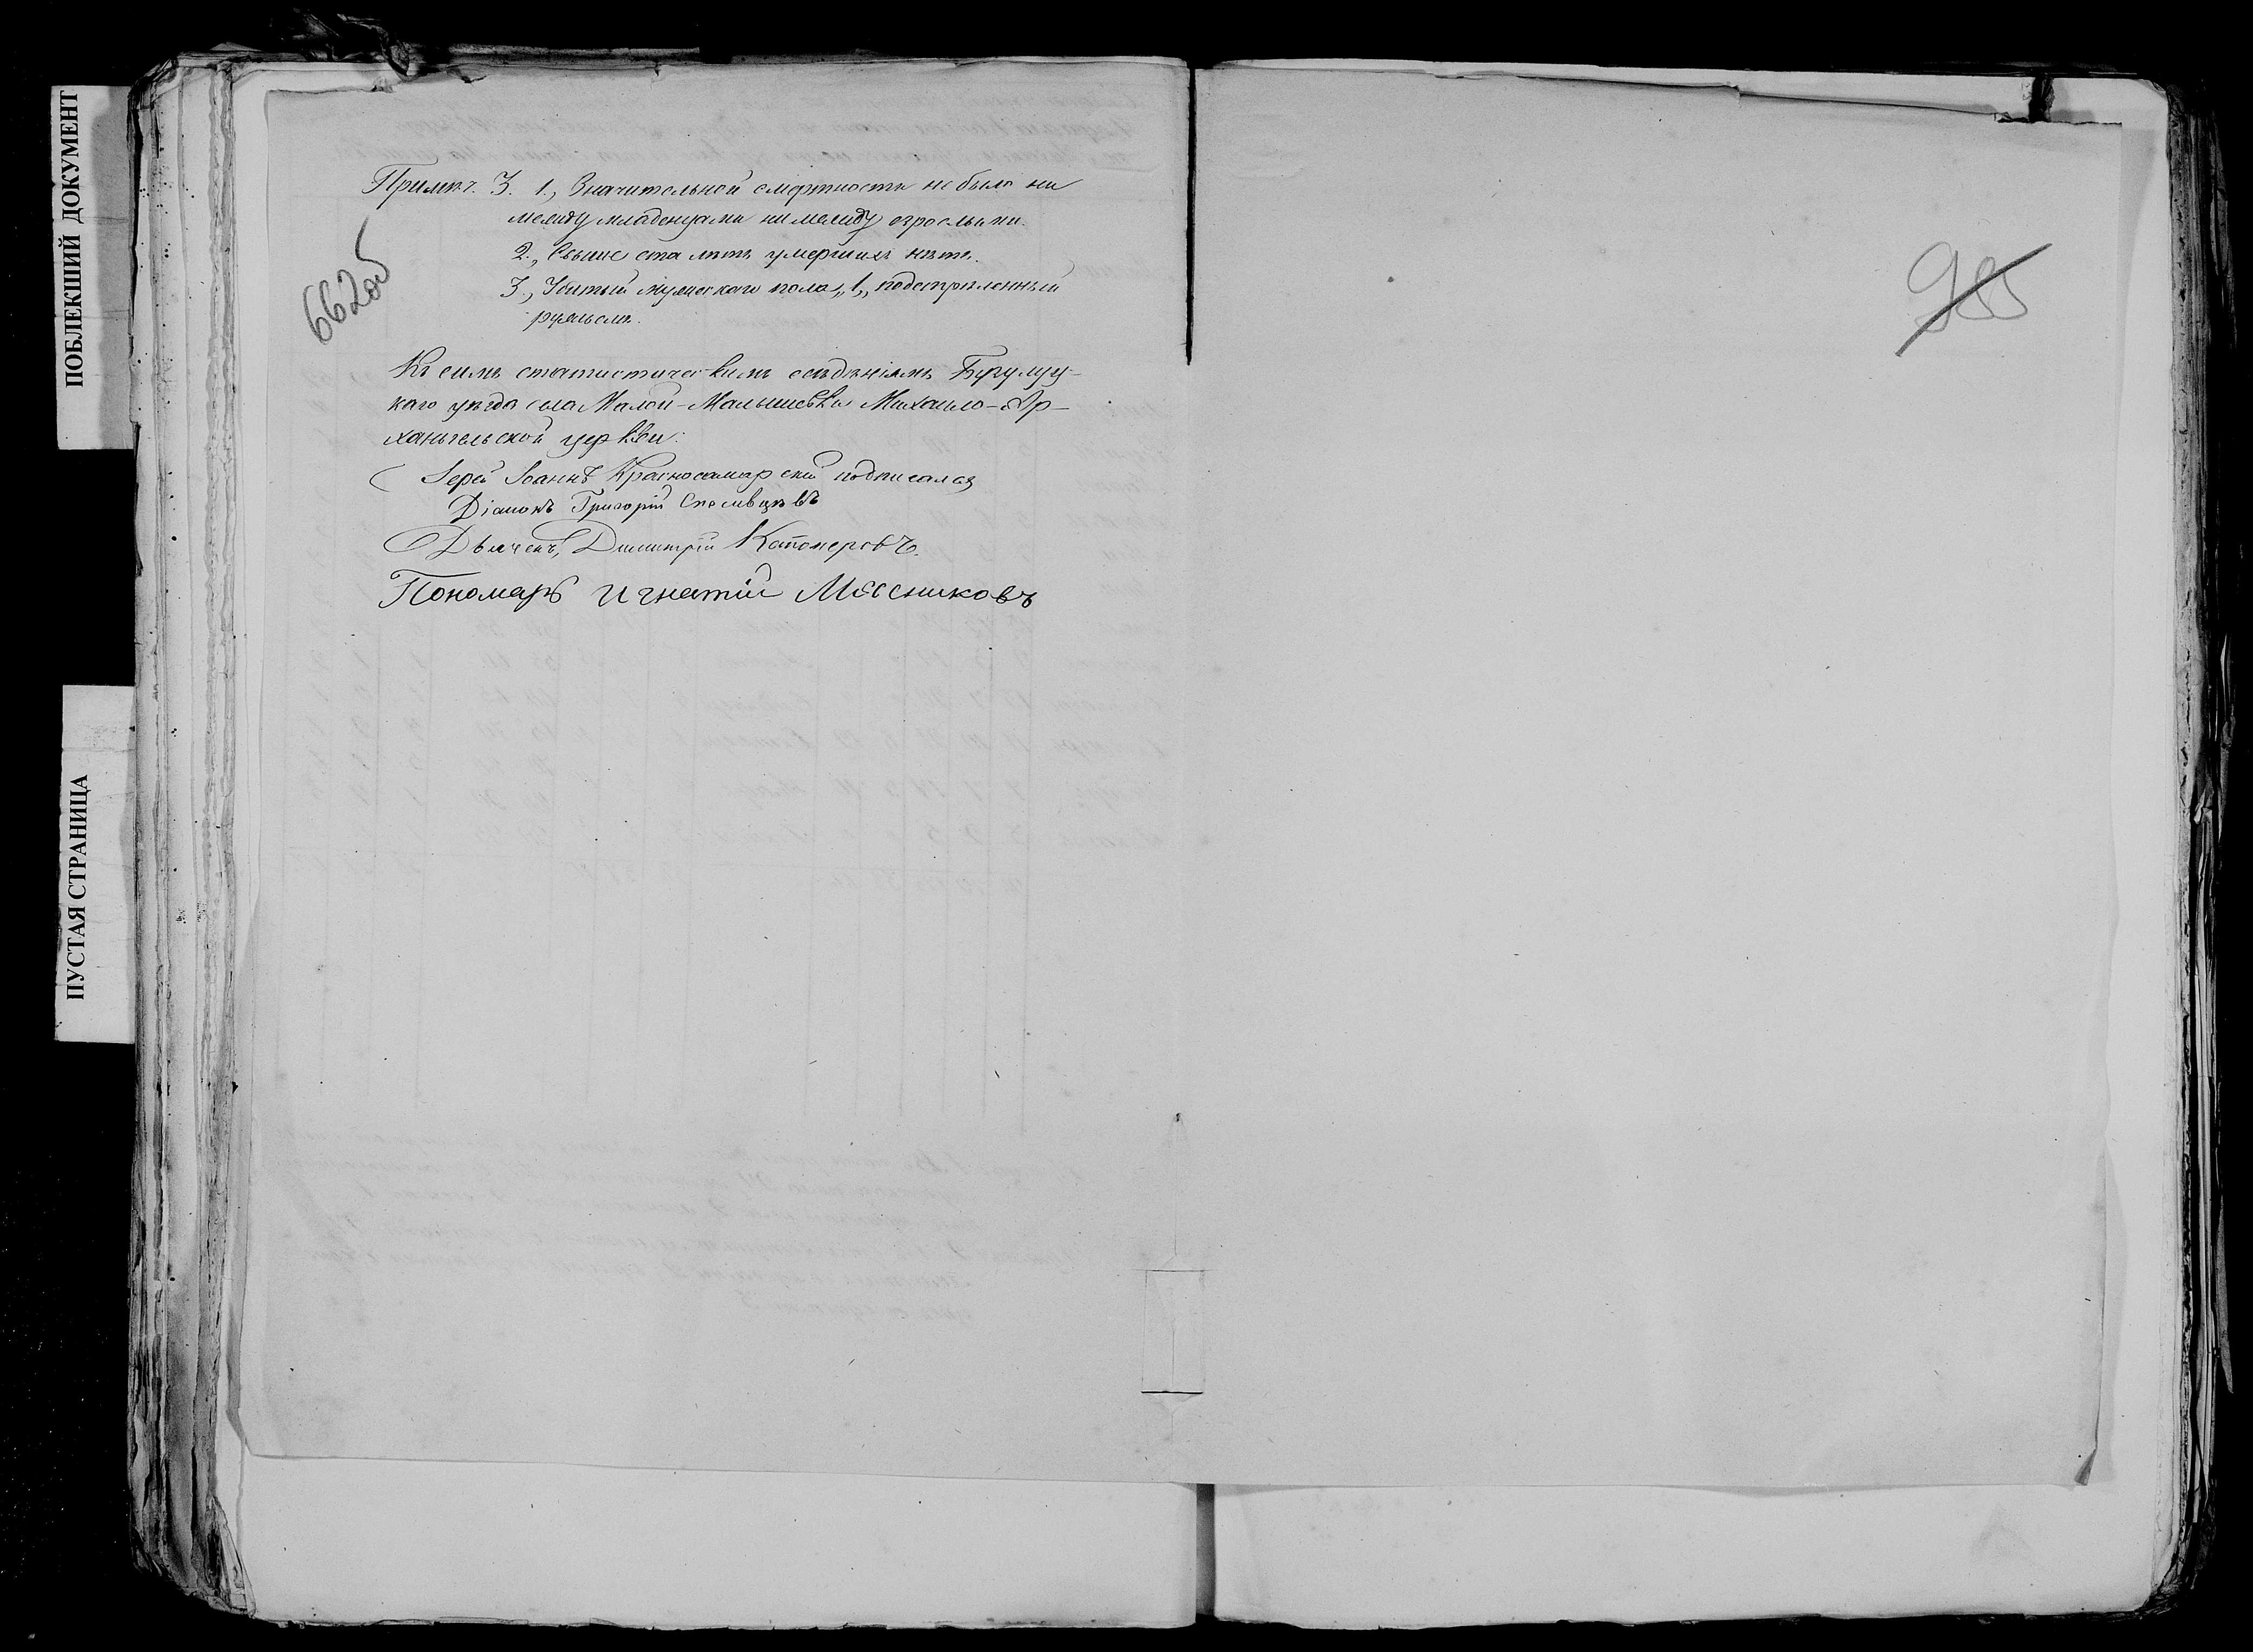 ПОБЛЕКШИЙ ДОКУМЕНТ
ПУСТАЯ СТРАНИЦА
662об
Примѣч. 3. 1., Значительной смертности не было ни
между младенцами ни между взрослыми.
2., Свыше ста лѣтъ умершихъ нѣтъ.
3., Убитый мужескаго пола „1„ подстрѣленный
ружьемъ.
Къ симъ статистическимъ свѣдѣніямъ Бузулуц-
каго уѣзда села Малой-Малышевки Михаило-Ар-
хангельской церкви:
Іерей Іоаннъ Красносамарскій подписался
Діаконъ Григорій
Дьячекъ, Димитрій
Пономарь Игнатій Мясниковъ
985